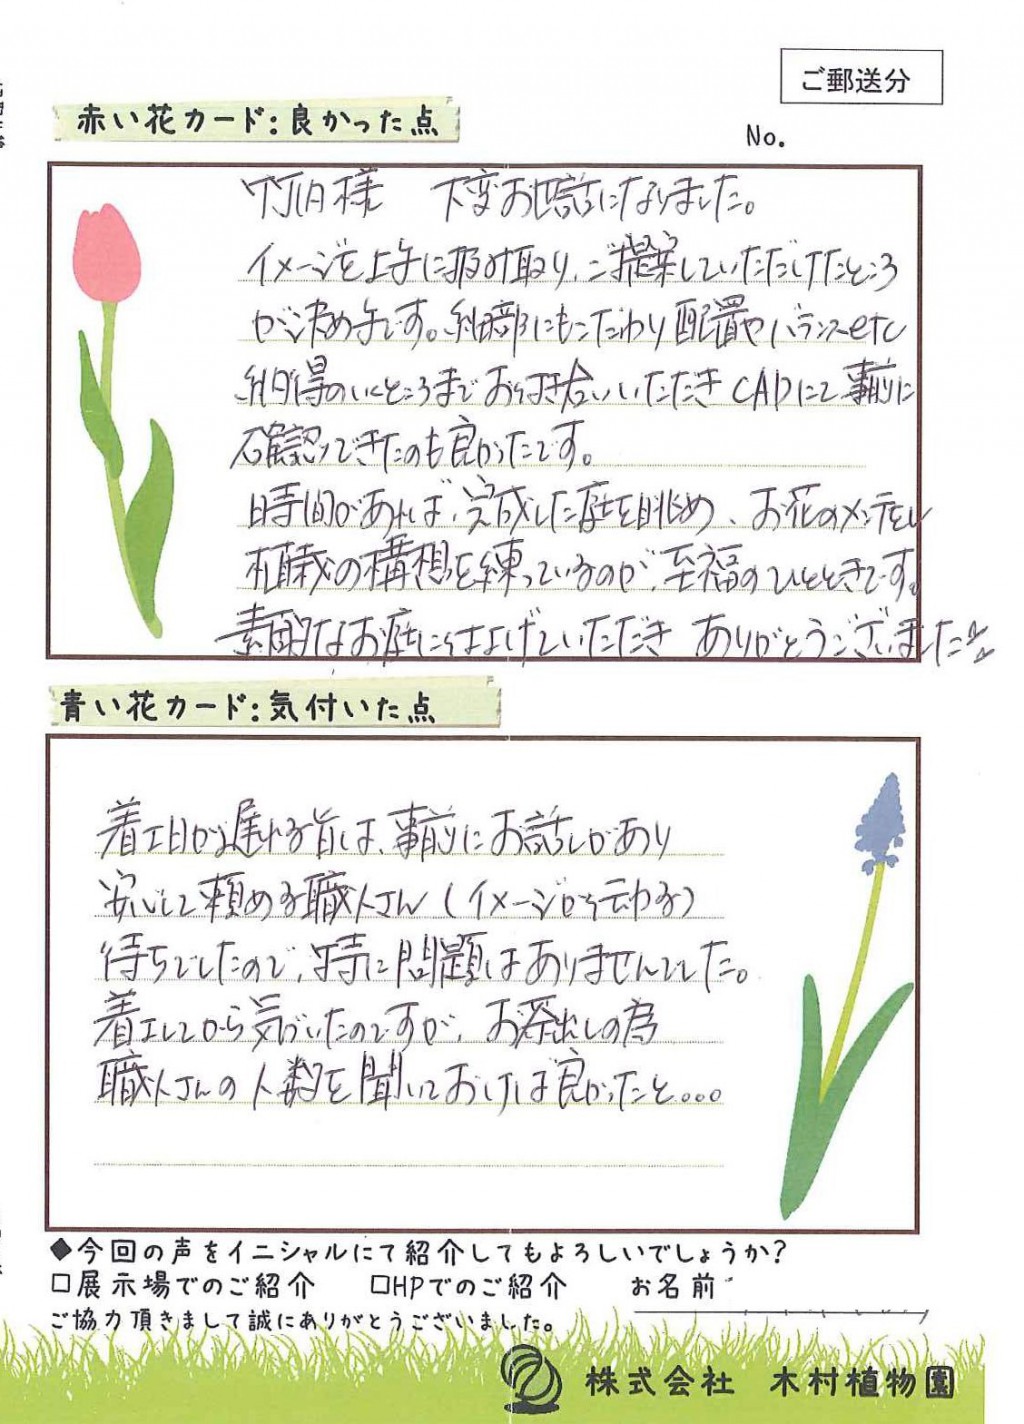 ご郵送分
赤い花カード:良かった点
No.
様 大変お世話になりました。
イメージを上手に汲み取り、ご提案していただけたところ
が決め手です。細部にもこだわり配置やバランスetc
納得のいくところまでお付き合いいただきCADにて事前に
確認できたのも良かったです。
時間があれば、完成した庭を眺め、お花のメンテをし
植栽の構想を練っているのが、至福のひとときです。
素敵なお庭に仕上げていただき ありがとうございました
青い花カード:気付いた点
着工日が遅れる旨は、事前にお話しがあり
安心して頼める職人さん(イメージが伝わる)
待ちでしたので、特に問題はありませんでした。
着工してから気づいたのですが、お茶出しの為
職人さんの人数を聞いておけば良かったと...
◆今回の声をイニシャルにて紹介してもよろしいでしょうか?
□展示場でのご紹介 □HPでのご紹介 お名前
ご協力頂きまして誠にありがとうございました。
株式会社 木村植物園